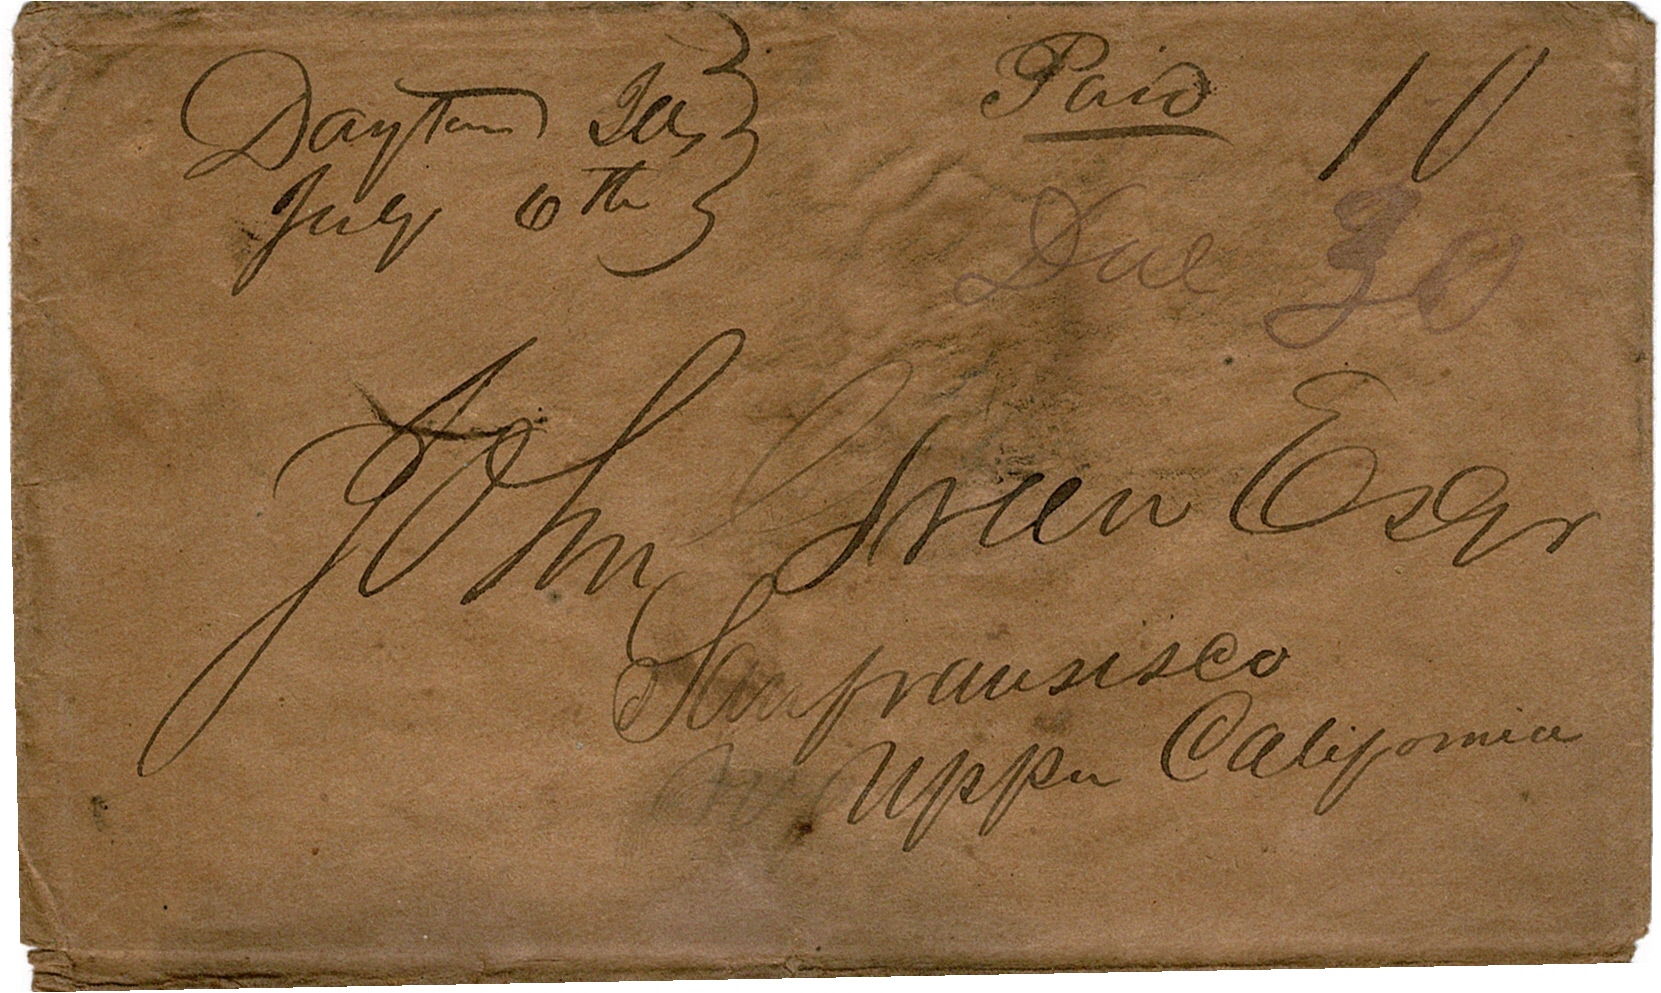 Dayton Ill
July 6th
Paid 10
Due 30
John Green Esqr
Sanfransisco
Upper California